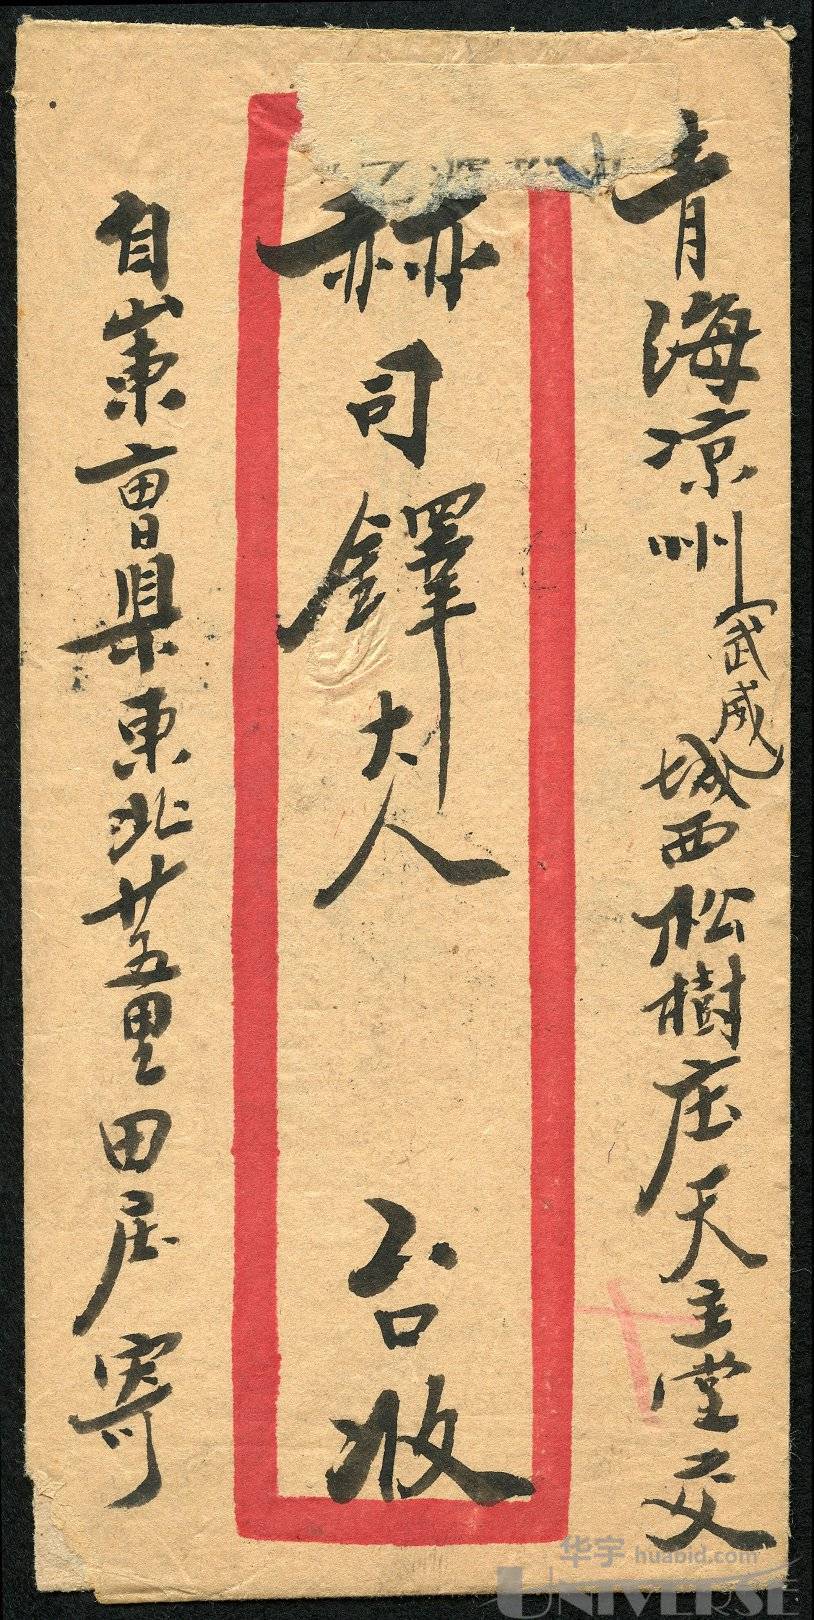 青海凉州武威城西松樹庄天主堂交
赫司鐸大人 台收
自山東曹県東北廿五里田庄寄
华宇 huabid.com
UNIVERSE